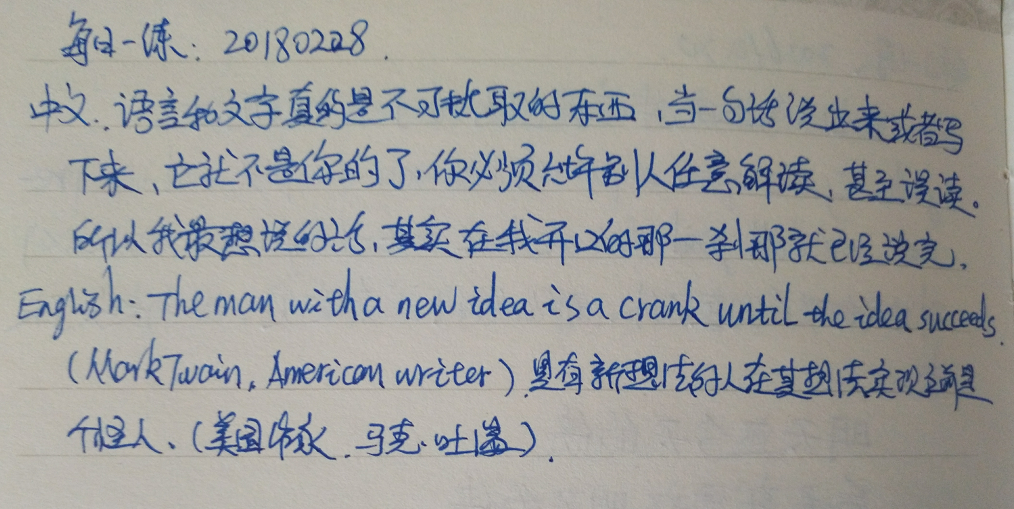 每日一练: 20180228.
中文. 语言和文字真的是不可挑取的东西,当一句话说出来或者写
下来,它就不是你的了,你必须忍许别人任意解读,甚至误读。
所以我最想说的话,其实在我开口的那一刹那就已经说完.
English: The man with a new idea is a crank until the idea succeeds.
(Mark Twain, American writer) 具有新想法的人在其想法实现之前是
个怪人. (美国作家.马克·吐温).